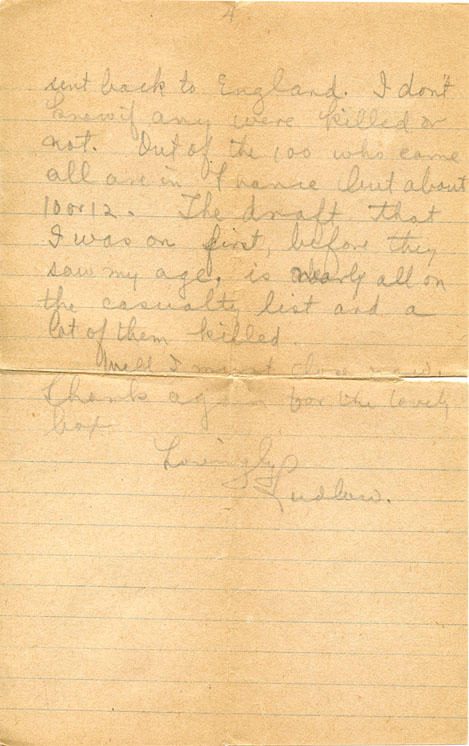 4
sent back to England. I don't
know if any were killed or
not. Out of the 100 who came
all are in France but about
10 or 12. The draft that
I was on first, before they
saw my age, is nearly all on
the casualty list and a
lot of them killed.
Well I must close now.
Thank again for the lovely
box
Lovingly
Ludlow.